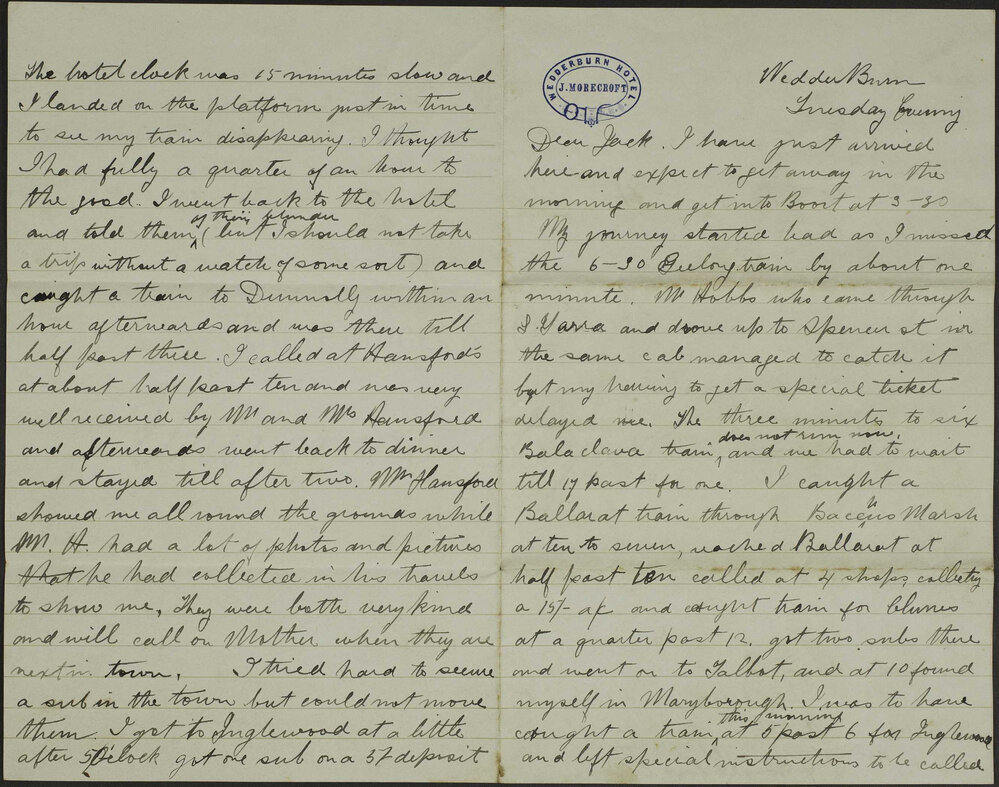 WEDDERBURN HOTEL
J. MORECROFT
Wedder Burn
Tuesday Evening
Dear Jack. I have just arrived
here and expect to get away in the
morning and get into Boort at 3-30
My journey started bad as I missed
the 6-30 Geelong train by about one
minute. Mr Hobbs who came through
S. Yarra and drove up to Spencer st in
the same cab managed to catch it
but my having to get a special ticket
delayed me. The three minutes to six
does not run now,
Balaclava train, and we had to wait
till 17 past for one. I caught a
Ballarat train through Bacchus Marsh
at ten to seven, reached Ballarat at
half past ten called at 4 shops, collectg
a 15/- a/c and caught train for Clunes
at a quarter past 12. got two subs there
and went on to Talbot, and at 10 found
myself in Maryborough. I was to have
this morning
caught a train at 5 past 6 for Inglewood
and left special instructions to be called
The hotel clock was 15 minutes slow and
I landed on the platform just in time
to see my train disappearing. I thought
I had fully a quarter of an hour to
the good. I went back to the hotel
of their blunder
and told them (but I should not take
a trip without a watch of some sort) and
caught a train to Dunnolly within an
hour afterwards and was there till
half past three. I called at Hansford's
at about half past ten and was very
well received by Mr and Mrs Hansford
and afterwards went back to dinner
and stayed till after two. Mrs Hansford
showed me all round the grounds while
Mr. H. had a lot of photos and pictures
that he had collected in his travels
to show me. They were both very kind
and will call on Mother when they are
next in town. I tried hard to secure
a sub in the town but could not move
them. I got to Inglewood at a little
after 5 Oclock got one sub on a 5/- deposit